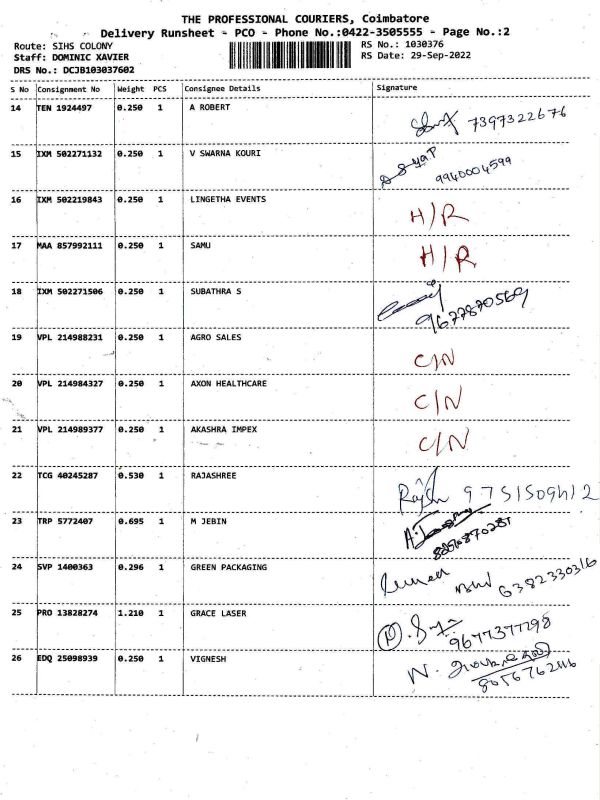 THE PROFESSIONAL COURIERS, Coimbatore
Delivery Runsheet - PCO - Phone No.:0422-3505555 - Page No.:2
Route: SIHS COLONY RS No.: 1030376
Staff: DOMINIC XAVIER RS Date: 29-Sep-2022
DRS No.: DCJB103037602
S No Consignment No Weight PCS Consignee Details Signature
14 TEN 1924497 0.250 1 A ROBERT
7397322676
15 IXM 502271132 0.250 1 V SWARNA KOURI
9940004599
16 IXM 502219843 0.250 1 LINGETHA EVENTS
H/R
17 MAA 857992111 0.250 1 SAMU
H/R
18 IXM 502271506 0.250 1 SUBATHRA S
9677870569
19 VPL 214988231 0.250 1 AGRO SALES
C/N
20 VPL 214984327 0.250 1 AXON HEALTHCARE
C/N
21 VPL 214989377 0.250 1 AKASHRA IMPEX
C/N
22 TCG 40245287 0.530 1 RAJASHREE
9751509412
23 TRP 5772407 0.695 1 M JEBIN
24 SVP 1400363 0.296 1 GREEN PACKAGING
6382330316
25 PRO 13828274 1.210 1 GRACE LASER
9677377298
26 EDQ 25098939 0.250 1 VIGNESH